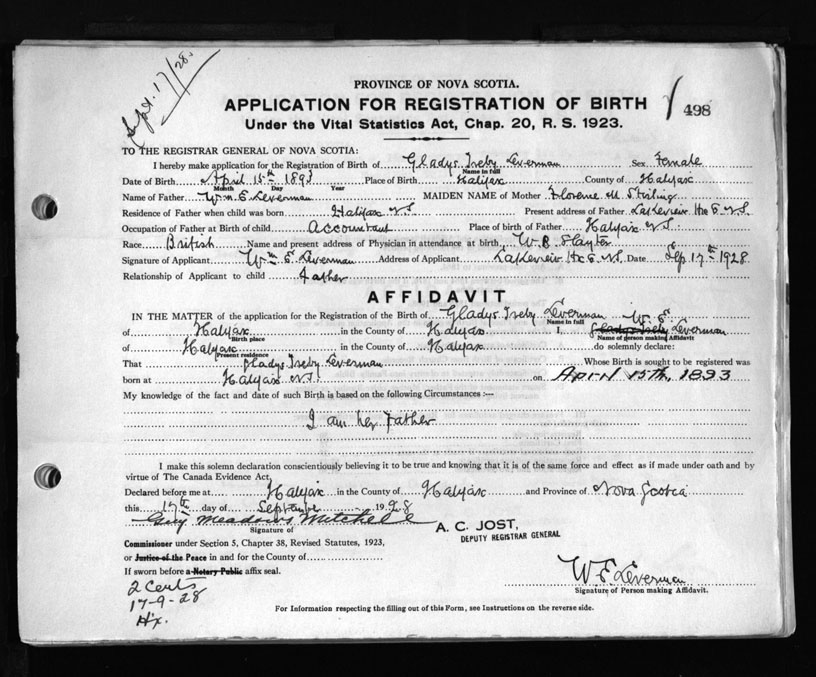 Sept. 17/28.
PROVINCE OF NOVA SCOTIA.
APPLICATION FOR REGISTRATION OF BIRTH
498
Under the Vital Statistics Act, Chap. 20, R. S. 1923.
TO THE REGISTRAR GENERAL OF NOVA SCOTIA:
I hereby make application for the Registration of Birth of Gladys Treby Leverman Sex Female
Name in full
Date of Birth April 15th 1893 Place of Birth Halifax County of Halifax
Month Day Year
Name of Father Wm. E. Leverman MAIDEN NAME of Mother Florence M. Stirling
Residence of Father when child was born Halifax N.S. Present address of Father Lakeview Hx Co N.S.
Occupation of Father at Birth of child Accountant Place of birth of Father Halifax N.S.
Race British Name and present address of Physician in attendance at birth W. B. Slayter
Signature of Applicant Wm E. Leverman Address of Applicant Lakeview Hx Co N.S. Date Sep 17th 1928
Relationship of Applicant to child Father
AFFIDAVIT
IN THE MATTER of the application for the Registration of Birth of Gladys Treby Leverman W. E.
Name in full
of Halifax in the County of Halifax I, Gladys Treby Leverman
Birth place Name of person making Affidavit
of Halifax in the County of Halifax do solemnly declare:
Present residence
That Gladys Treby Leverman Whose Birth is sought to be registered was
born at Halifax N.S. on April 15th, 1893
My knowledge of the fact and date of such Birth is based on the following Circumstances :—
I am her Father
I make this solemn declaration conscientiously believing it to be true and knowing that it is of the same force and effect as if made under oath and by
virtue of The Canada Evidence Act.
Declared before me at Halifax in the County of Halifax and Province of Nova Scotia
this 17th day of September 1928
Guy Meadows Mitchell
Signature of
A. C. JOST,
DEPUTY REGISTRAR GENERAL
Commissioner under Section 5, Chapter 38, Revised Statutes, 1923,
or Justice of the Peace in and for the County of
If sworn before a Notary Public affix seal.
W. E. Leverman
Signature of Person making Affidavit.
2 Certs
17-9-28
Hx.
For Information respecting the filling out of this Form, see Instructions on the reverse side.